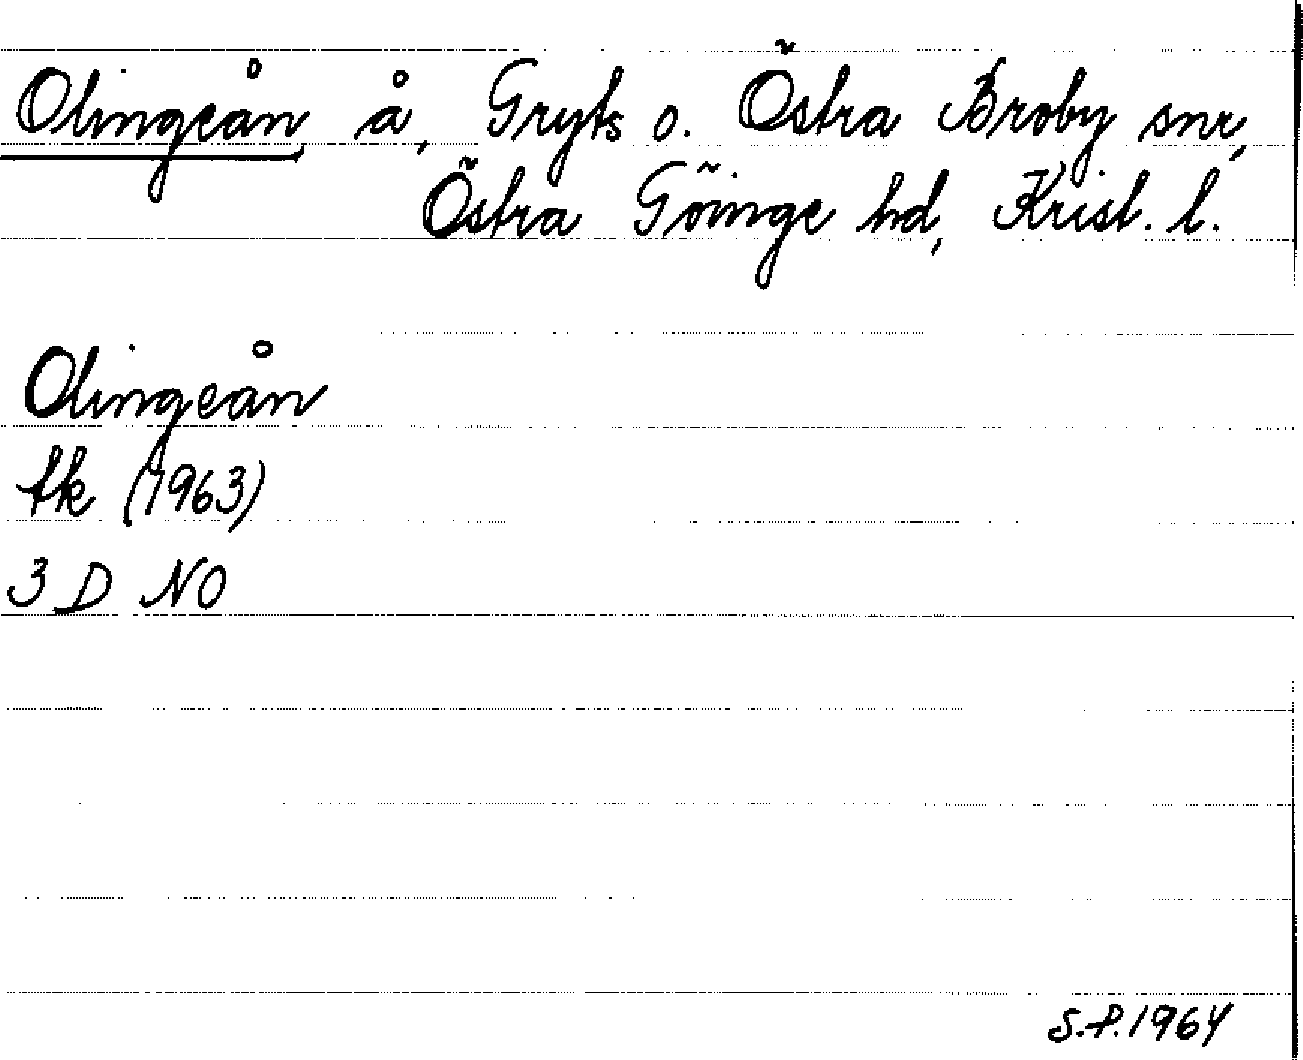 Olingeån å, Gryts o. Östra Broby snr,
Östra Göinge hd, Krist. l.
Olingeån
tk (1963)
3 D NO
S.P. 1964